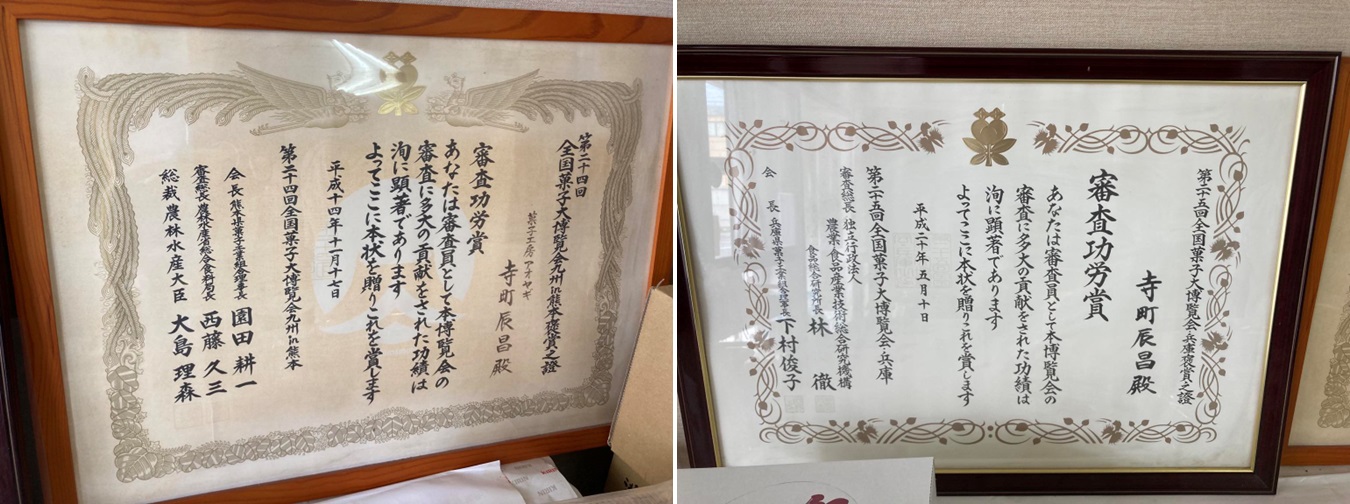 第二十四回
全国菓子大博覧会九州in熊本褒賞之證
菓子工房アオヤギ
寺町辰昌殿
審査功労賞
あなたは審査員として本博覧会の
審査に多大の貢献をされた功績は
洵に顕著であります
よってここに本状を贈りこれを賞します
平成十四年十一月十七日
第二十四回全国菓子大博覧会九州in熊本
会長 熊本県菓子工業組合理事長 園田耕一
審査総長 農林水産省総合食料局長 西藤久三
総裁 農林水産大臣 大島理森
第二十五回全国菓子大博覧会・兵庫褒賞之證
寺町辰昌殿
審査功労賞
あなたは審査員として本博覧会の
審査に多大の貢献をされた功績は
洵に顕著であります
よってここに本状を贈りこれを賞します
平成二十年五月十日
第二十五回全国菓子大博覧会・兵庫
審査総長 独立行政法人
農業・食品産業技術総合研究機構
食品総合研究所長 林徹
会長 兵庫県菓子工業組合理事長 下村俊子